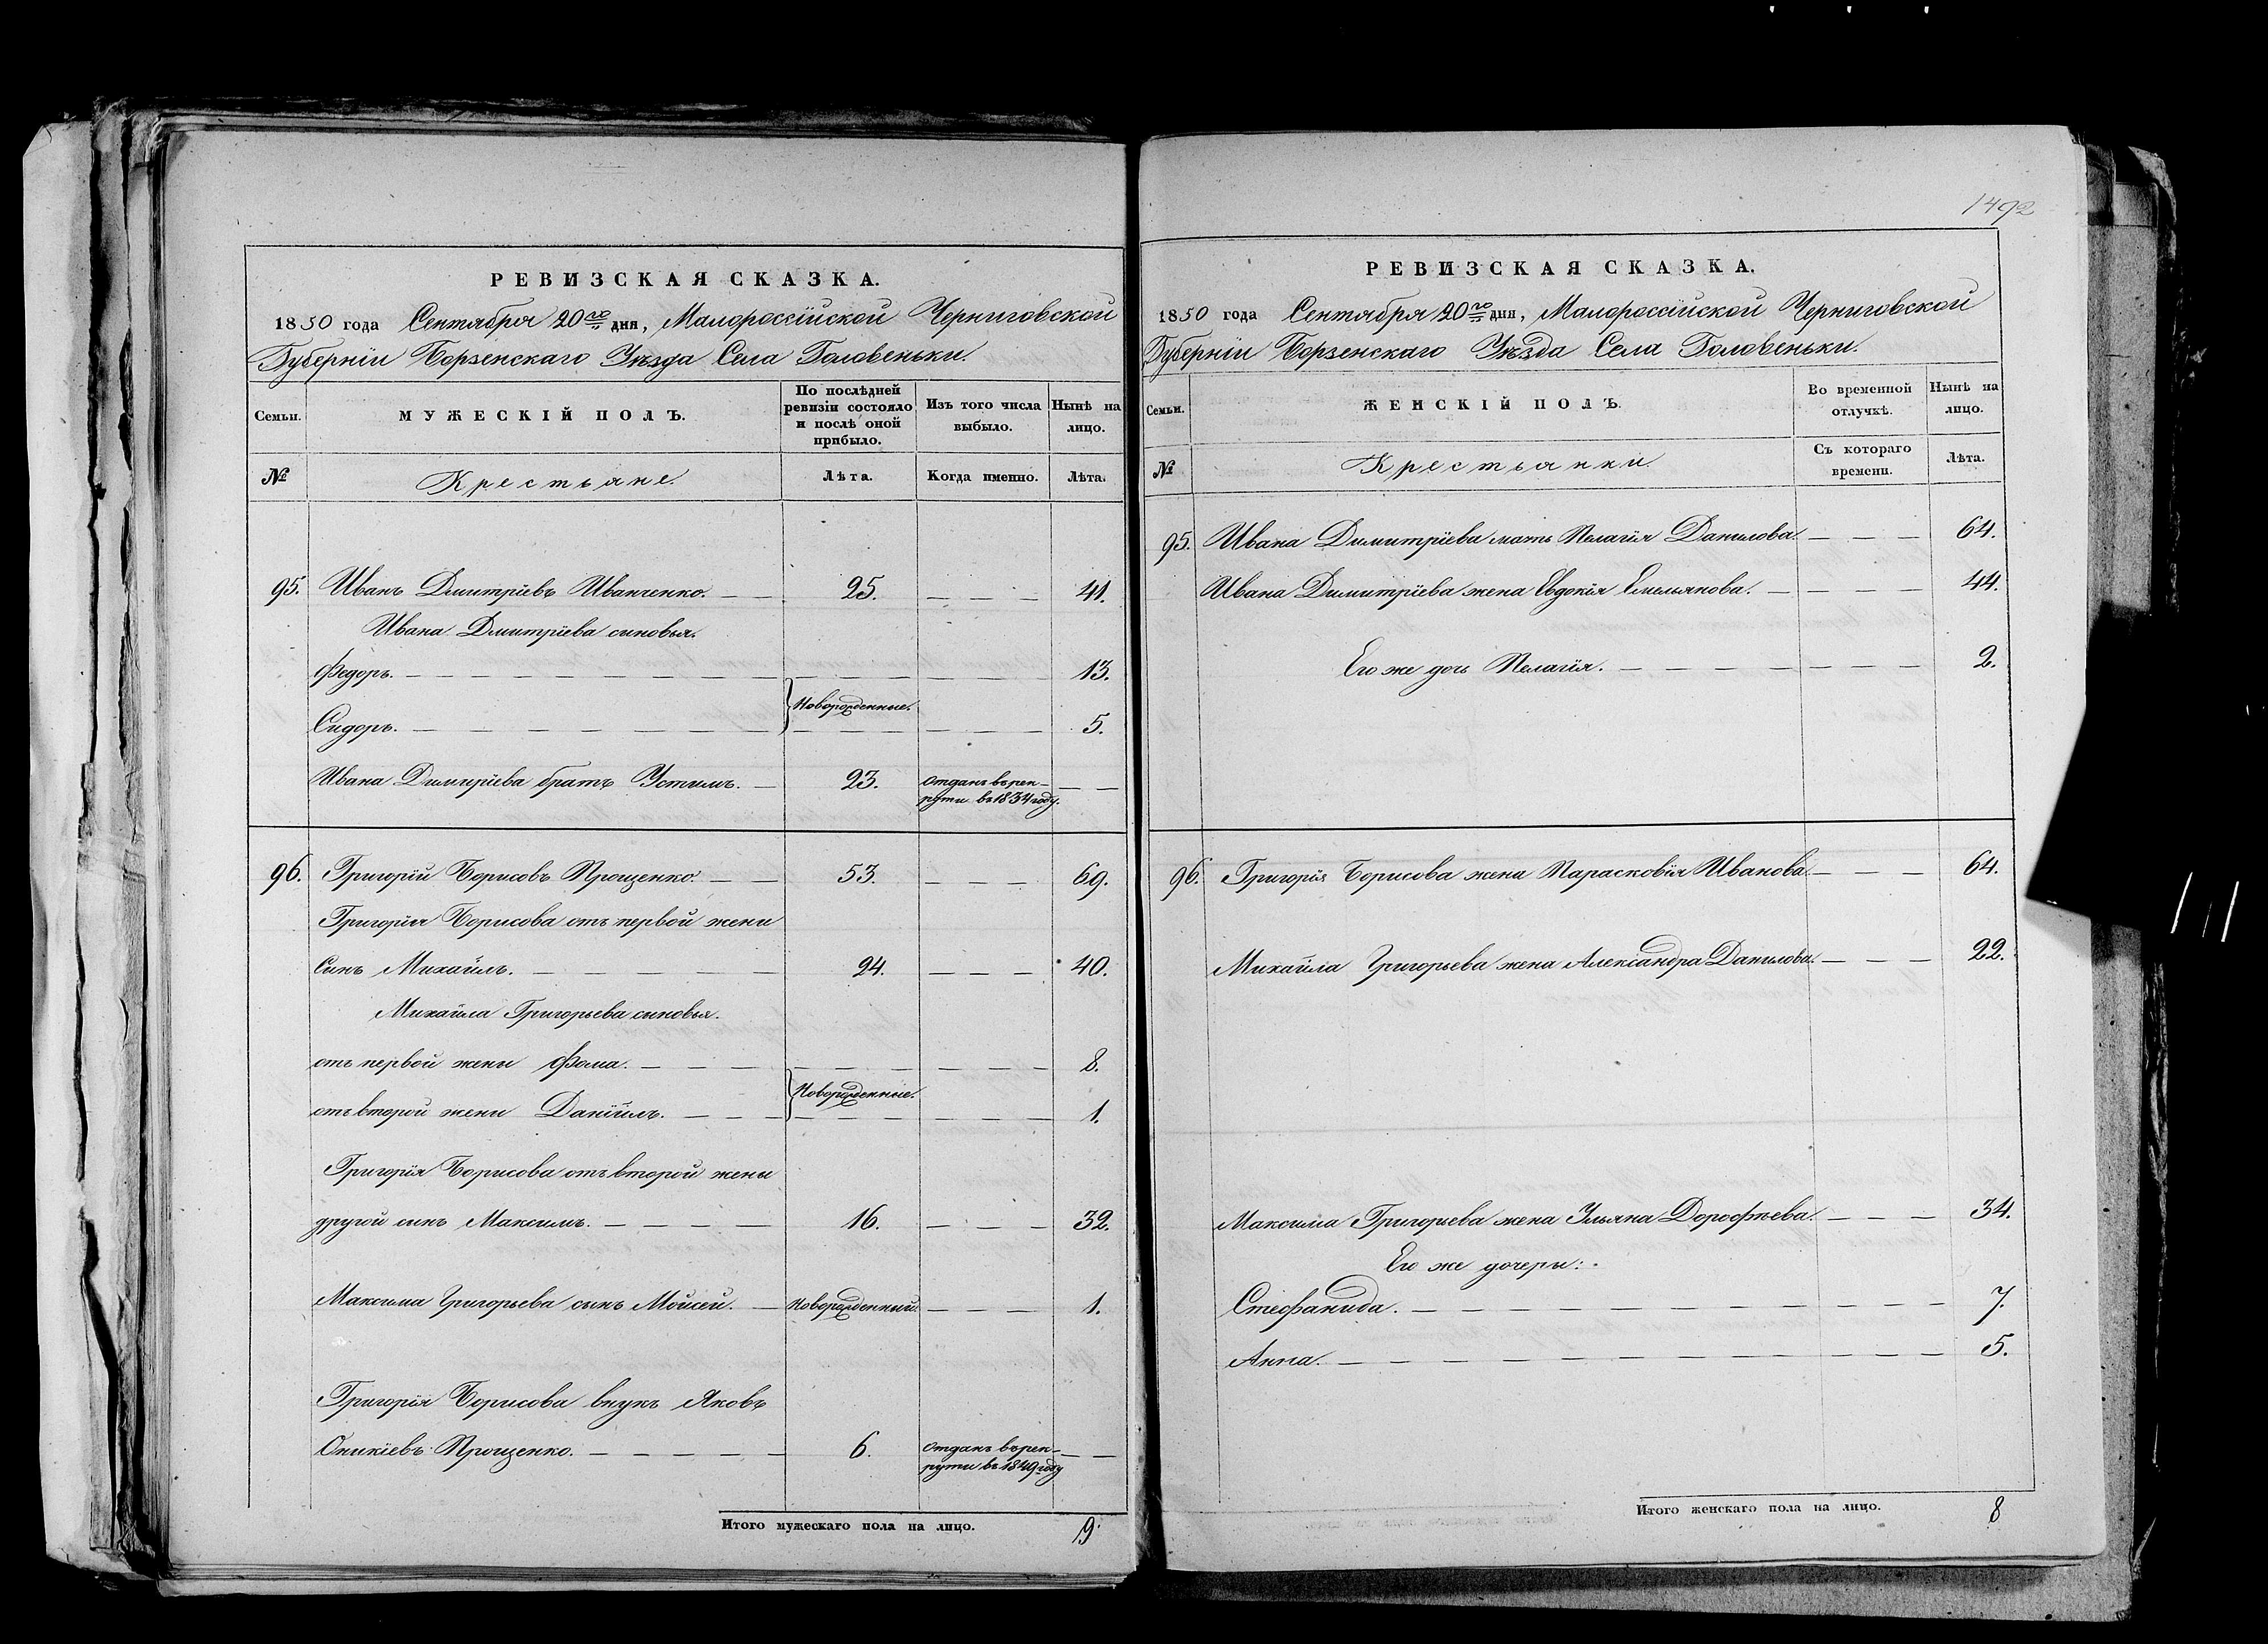 РЕВИЗСКАЯ СКАЗКА.
1850 года Сентября 20го дня, Малороссійской Черниговской
Губерніи Борзенскаго Уѣзда Села Головеньки.
Семьи. МУЖЕСКІЙ ПОЛЪ. По послѣдней ревизіи состояло и послѣ оной прибыло. Изъ того числа выбыло. Нынѣ на лицо.
№ Крестьяне. Лѣта. Когда именно. Лѣта.
95. Иванъ Дмитріевъ Иванченко. — — 25. — — — 41.
Ивана Дмитріева синовья.
Федоръ. — — — 13.
Новорожденные.
Сидоръ. — — — 5.
Ивана Димитріева братъ Устимъ. — 23. отданъ въ рек-
рути въ 1834 году. — —
96. Григорій Борисовъ Прощенко. — — 53. — — — 69.
Григорія Борисова отъ первой жени
Синъ Михайлъ. — — — 24. — — — 40.
Михайла Григорьева сыновья.
отъ первой жены Фома. — — — 8.
Новорожденные.
отъ второй жени Даніилъ. — — — 1.
Григорія Борисова отъ второй жены
другой синъ Максимъ. — — — — 16. — — — 32.
Максима Григорьева сынъ Мойсей. — Новорожденный. — — — 1.
Григорія Борисова внукъ Яковъ
Оникіевъ Прощенко. — — — — — 6. отданъ въ рек-
рути въ 1849 году — —
Итого мужескаго пола на лицо. 9
1492
РЕВИЗСКАЯ СКАЗКА.
1850 года Сентября 20го дня, Малороссійской Черниговской
Губерніи Борзенскаго Уѣзда Села Головеньки.
Семьи. ЖЕНСКІЙ ПОЛЪ. Во временной отлучкѣ. Нынѣ на лицо.
№ Крестьянки. Съ котораго времени. Лѣта.
95. Ивана Димитріева мать Пелагія Данилова. — — — 64.
Ивана Димитріева жена Евдокія Емельянова. — — — — 44.
Его же дочь Пелагія. — — — 2.
96. Григорія Борисова жена Парасковія Иванова — — — 64.
Михайла Григорьева жена Александра Данилова. — — — 22.
Максима Григорьева жена Ульяна Дорофѣева. — — — 34.
Его же дочеры:
Стефанида. — — — 7.
Анна. — — — 5.
Итого женскаго пола на лицо. 8